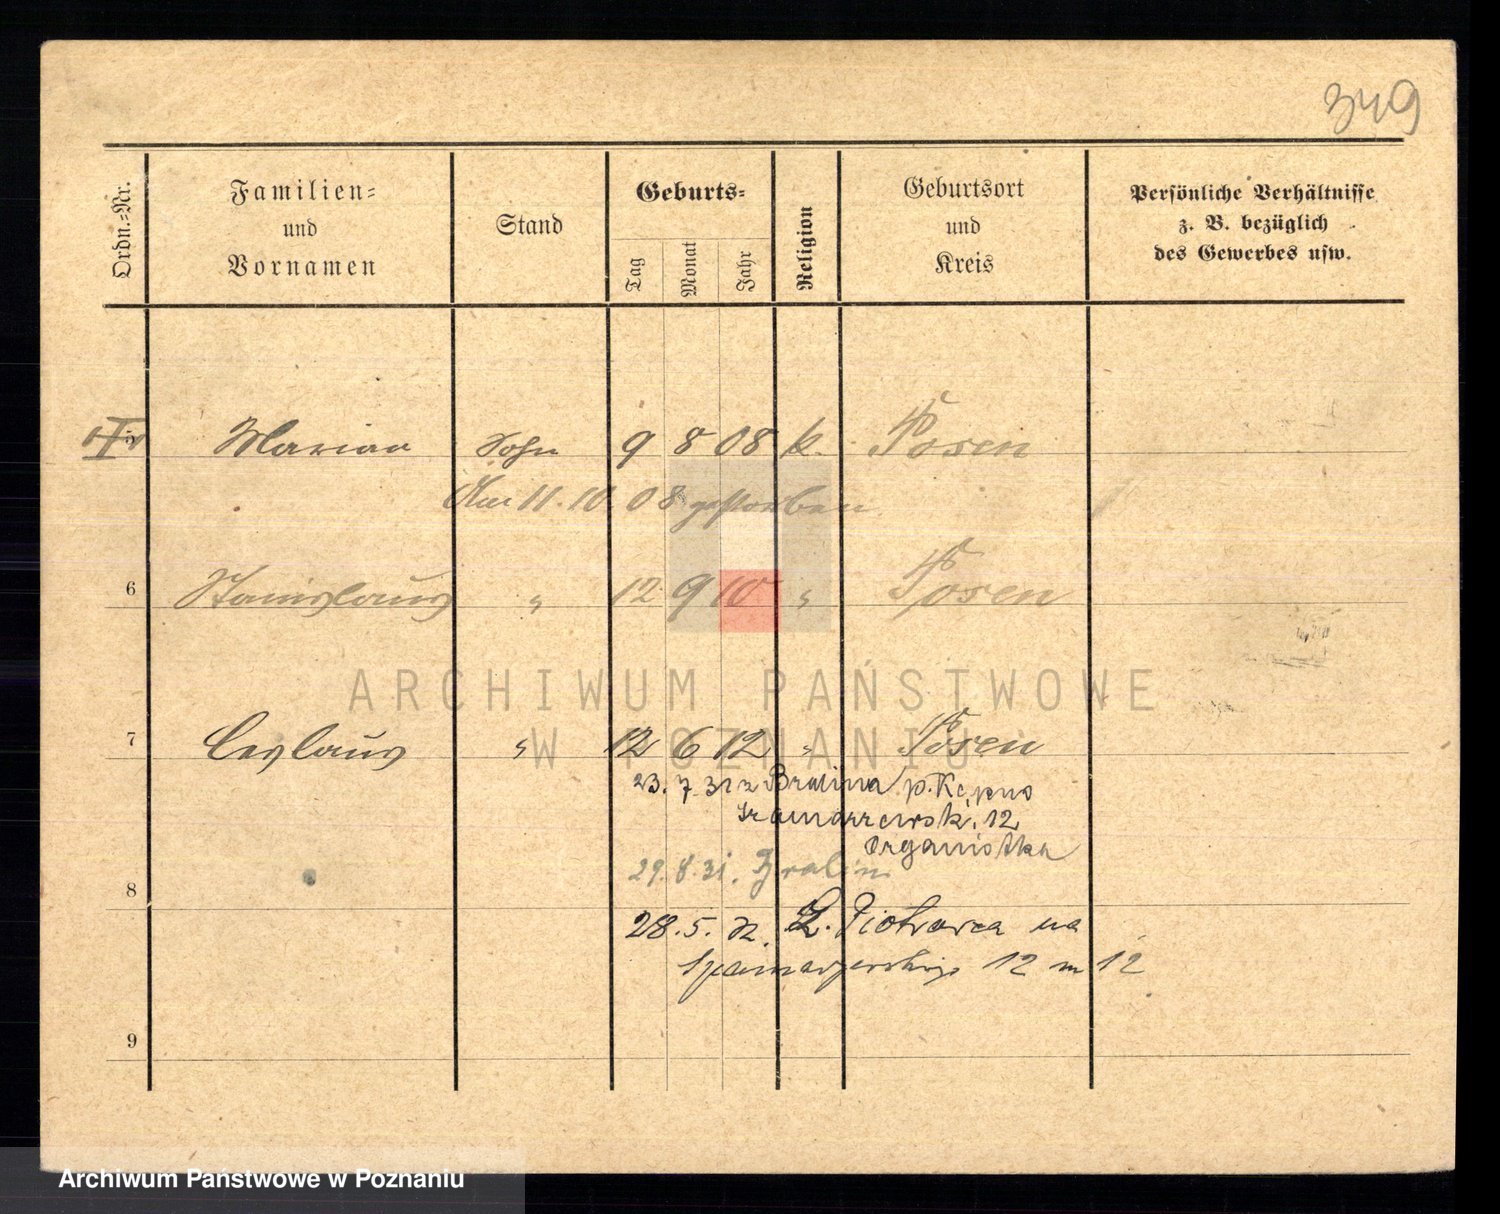 349
Ordn.-Nr.
Familien-
und
Vornamen
Stand
Geburts-
Tag
Monat
Jahr
Religion
Geburtsort
und
Kreis
Persönliche Verhältnisse
z. B. bezüglich
des Gewerbes usw.
5 Marian Sohn 9 8 08 k. Posen
Am 11. 10. 08 gestorben
6 Stanislaus " 12 9 10 " Posen
ARCHIWUM PAŃSTWOWE
W POZNANIU
7 Ceslaus " 12 6 12 " Posen
23. 7. 31 z Bralina p. Kępno
12
Organistka
29. 8. 31. Bralin
8
28. 5. 32. Z. Piotra na
12 m 12
9
Archiwum Państwowe w Poznaniu